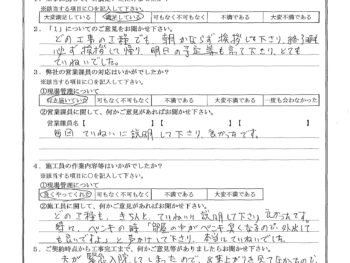 ※該当する項目に○を記入して下さい。
大変満足している 満足している 可も無く不可も無く 不満である 大変不満である
2.「1」についてのご意見をお聞かせ下さい。
どの工事の工程でも、朝かならず挨拶して下さり、終了時
必ず挨拶して帰り、明日の予定等も言って下さり、とても
ていねいでした。
3. 弊社の営業課員の対応はいかがでしたか?
※該当する項目に○を記入して下さい。
①現場管理について
行き届いている 可も無く不可も無く 不満である 大変不満である 一度も会わなかった
②営業課員に関して、何かご意見があればお聞かせ下さい。
営業課員名【 】【 】【 】
毎回ていねいに説明して下さり、良かったです。
4. 施工員の作業内容等はいかがでしたか?
※該当する項目に○を記入して下さい。
①現場管理について
良くやってくれた 可も無く不可も無く 不満である 大変不満である
②施工員に関して、何かご意見があればお聞かせ下さい。
どの工程も、きちんと、ていねいに説明して下さり良かったです。
時に、ペンキの時「
も言いですよ」と声かけして下さり、本当にていねいでした。
5. ご契約時点から工事完了まで、何かご意見等がありましたらお聞かせ下さい。
夫が緊急入院してしまったので、